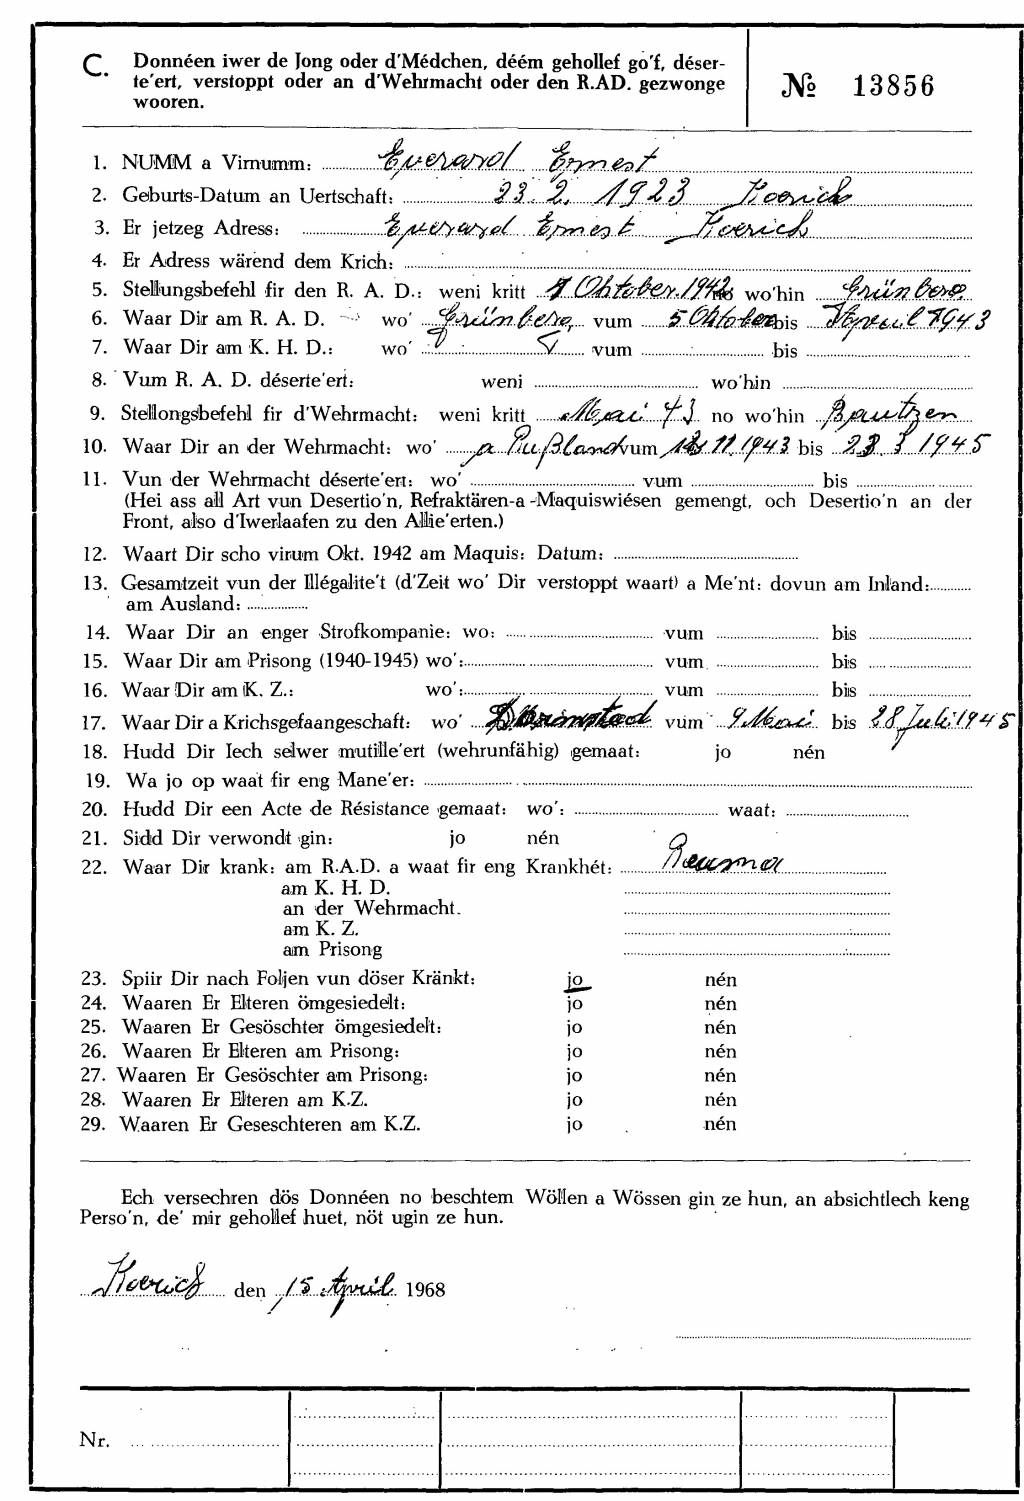 C. Donnéen iwer de Jong oder d'Médchen, déém gehollef go'f, déser-
te'ert, verstoppt oder an d'Wehrmacht oder den R.AD. gezwonge
wooren.
№ 13856
1. NUMM a Virnumm: Everard Ernest
2. Geburts-Datum an Uertschaft: 23. 2. 1923 Koerich
3. Er jetzeg Adress: Everard Ernest Koerich
4. Er Adress wärend dem Krich:
5. Stellungsbefehl fir den R. A. D.: weni kritt 1 Oktober. 1942 no wo'hin Grünberg
6. Waar Dir am R. A. D. wo' Grünberg vum 5 Oktober bis 1943
7. Waar Dir am K. H. D.: wo' vum bis
8. Vum R. A. D. déserte'ert: weni wo'hin
9. Stellongsbefehl fir d'Wehrmacht: weni kritt Mai 43 no wo'hin Bautzen
10. Waar Dir an der Wehrmacht: wo' a Rußland vum 11. 1943 bis 1945
11. Vun der Wehrmacht déserte'ert: wo' vum bis
(Hei ass all Art vun Desertio'n, Refraktären-a-Maquiswiésen gemengt, och Desertio'n an der
Front, also d'Iwerlaafen zu den Allie'erten.)
12. Waart Dir scho virum Okt. 1942 am Maquis: Datum:
13. Gesamtzeit vun der Illégalite't (d'Zeit wo' Dir verstoppt waart) a Me'nt: dovun am Inland:
am Ausland:
14. Waar Dir an enger Strofkompanie: wo: vum bis
15. Waar Dir am Prisong (1940-1945) wo': vum bis
16. Waar Dir am K. Z.: wo': vum bis
17. Waar Dir a Krichsgefaangeschaft: wo' vum 9 Mai bis 28 Juli 1945
18. Hudd Dir Iech selwer mutille'ert (wehrunfähig) gemaat: jo nén
19. Wa jo op waat fir eng Mane'er:
20. Hudd Dir een Acte de Résistance gemaat: wo': waat:
21. Sidd Dir verwondt gin: jo nén
22. Waar Dir krank: am R.A.D. a waat fir eng Krankhét: Reusma
am K. H. D.
an der Wehrmacht.
am K. Z.
am Prisong
23. Spiir Dir nach Foljen vun döser Kränkt: jo nén
24. Waaren Er Elteren ömgesiedelt: jo nén
25. Waaren Er Gesöschter ömgesiedelt: jo nén
26. Waaren Er Elteren am Prisong: jo nén
27. Waaren Er Gesöschter am Prisong: jo nén
28. Waaren Er Elteren am K.Z. jo nén
29. Waaren Er Geseschteren am K.Z. jo nén
Ech versechren dös Donnéen no beschtem Wöllen a Wössen gin ze hun, an absichtlech keng
Perso'n, de' mir gehollef huet, nöt ugin ze hun.
Koerich den 15 April 1968
Nr.